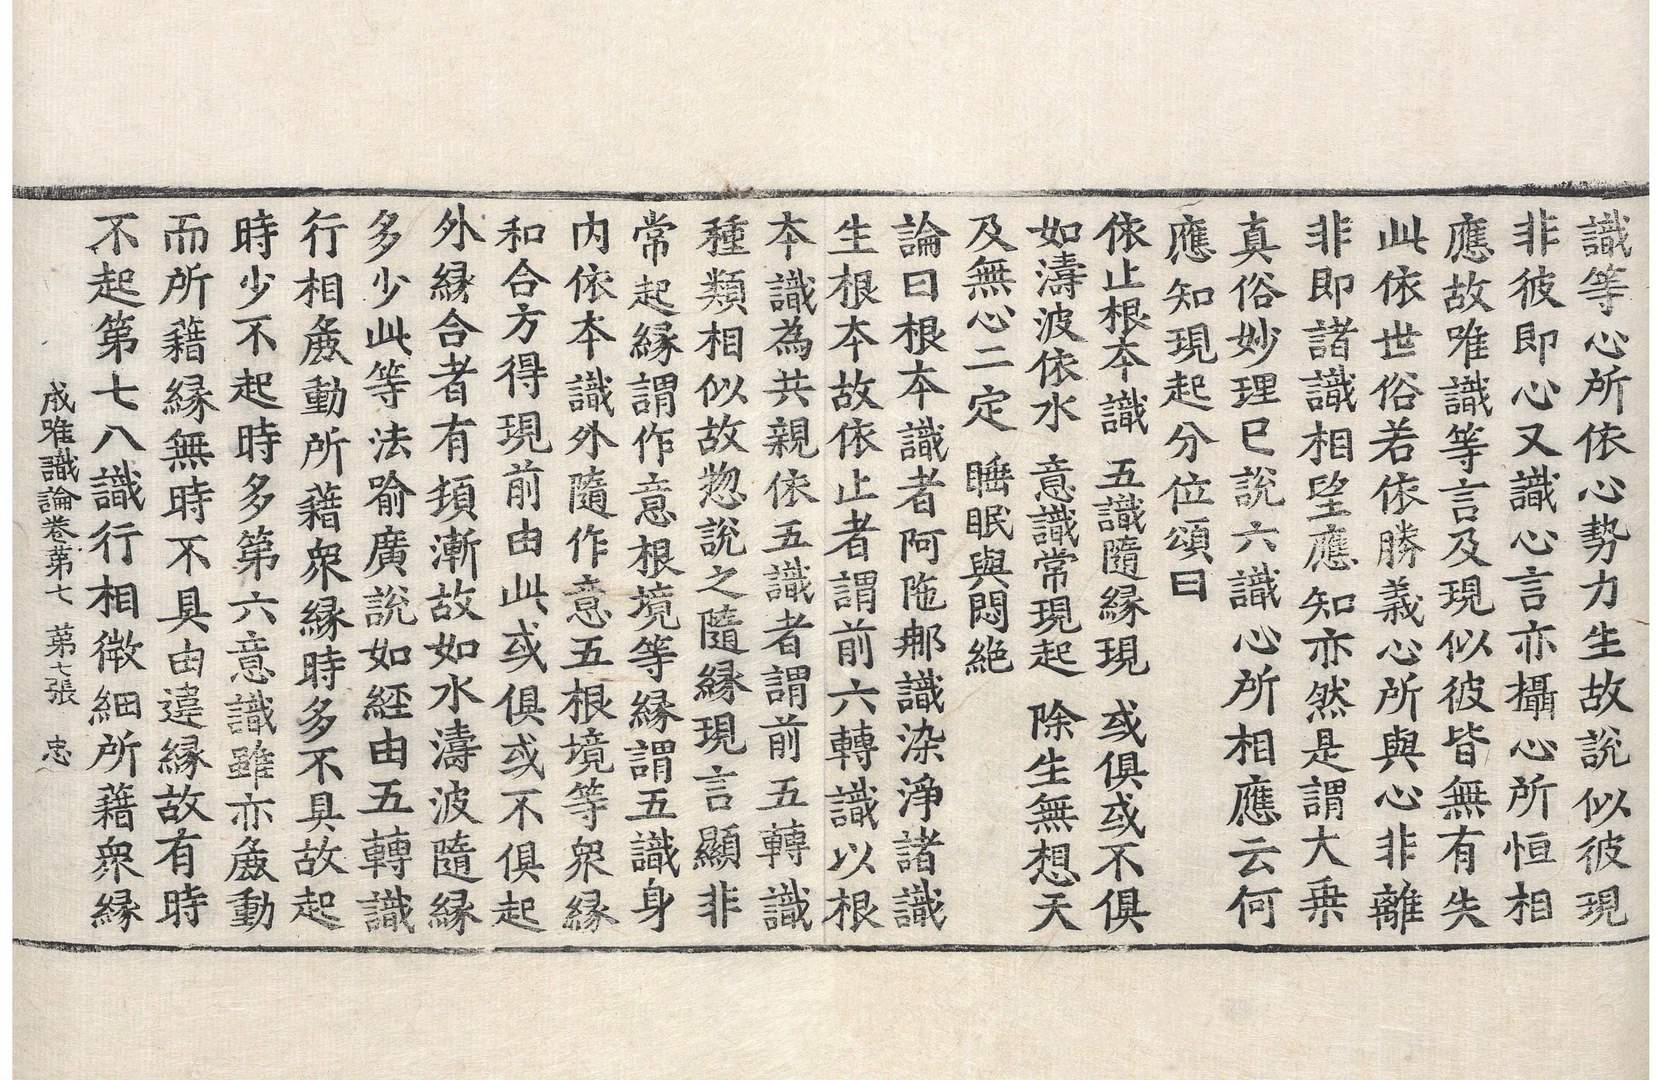 識等心所依心勢力生故說似彼現
非彼即心又識心言亦攝心所恒相
應故唯識等言及現似彼皆無有失
此依世俗若依勝義心所與心非離
非即諸識相望應知亦然是謂大乗
真俗妙理已說六識心所相應云何
應知現起分位頌曰
依止根本識 五識隨緣現 或俱或不俱
如濤波依水 意識常現起 除生無想天
及無心二定 睡眠與悶絕
論曰根本識者阿陁那識染淨諸識
生根本故依止者謂前六轉識以根
本識為共親依五識者謂前五轉識
種類相似故惣說之隨緣現言顯非
常起緣謂作意根境等緣謂五識身
內依本識外隨作意五根境等衆緣
和合方得現前由此或俱或不俱起
外緣合者有頓漸故如水濤波隨緣
多少此等法喻廣說如經由五轉識
行相麁動所藉衆緣時多不具故起
時少不起時多第六意識雖亦麁動
而所藉緣無時不具由違緣故有時
不起第七八識行相微細所藉衆緣
成唯識論卷第七 第七張 忠